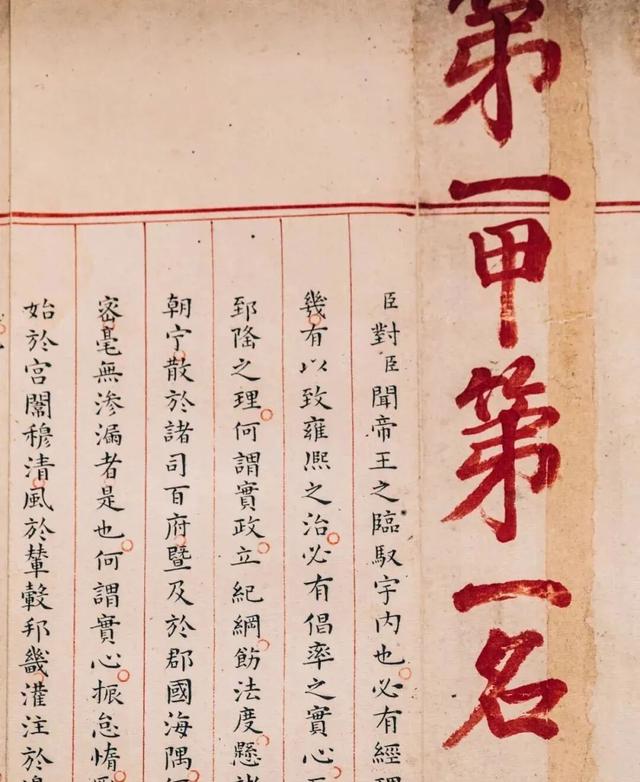 第一甲第一名
臣對臣聞帝王之臨馭宇內也必有經理
幾有以致雍熙之治必有倡率之實心
郅隆之理何謂實政立紀綱飭法度懸諸
朝宁散於諸司百府暨及於郡國海隅
密毫無滲漏者是也何謂實心振怠惰
始於宮闈穆清風於輦轂邦畿灌注於